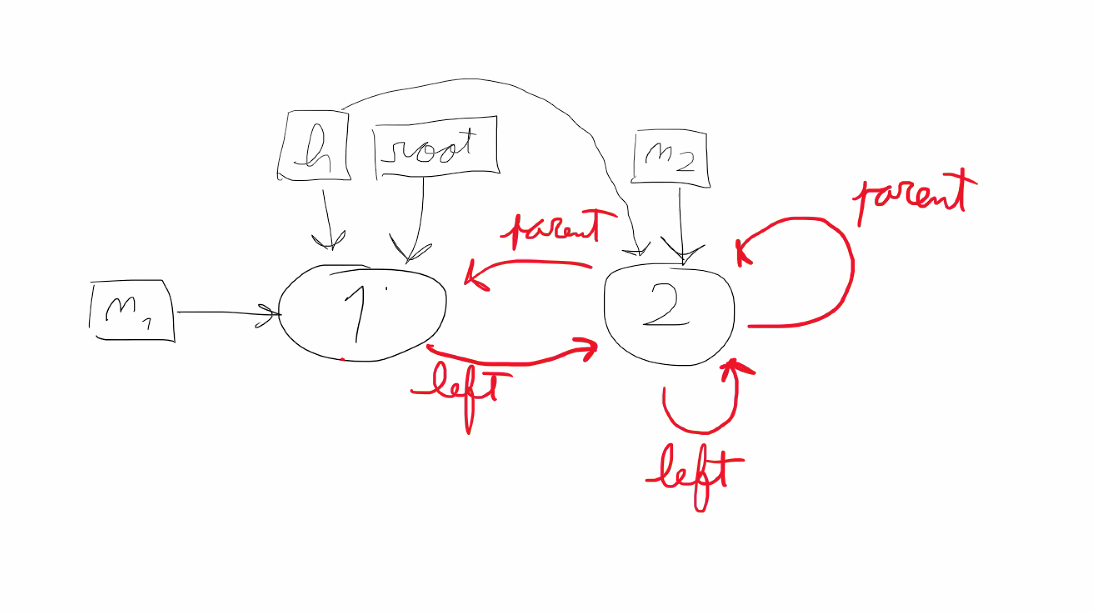 h
root
n2
parent
parent
n1
1
2
left
left